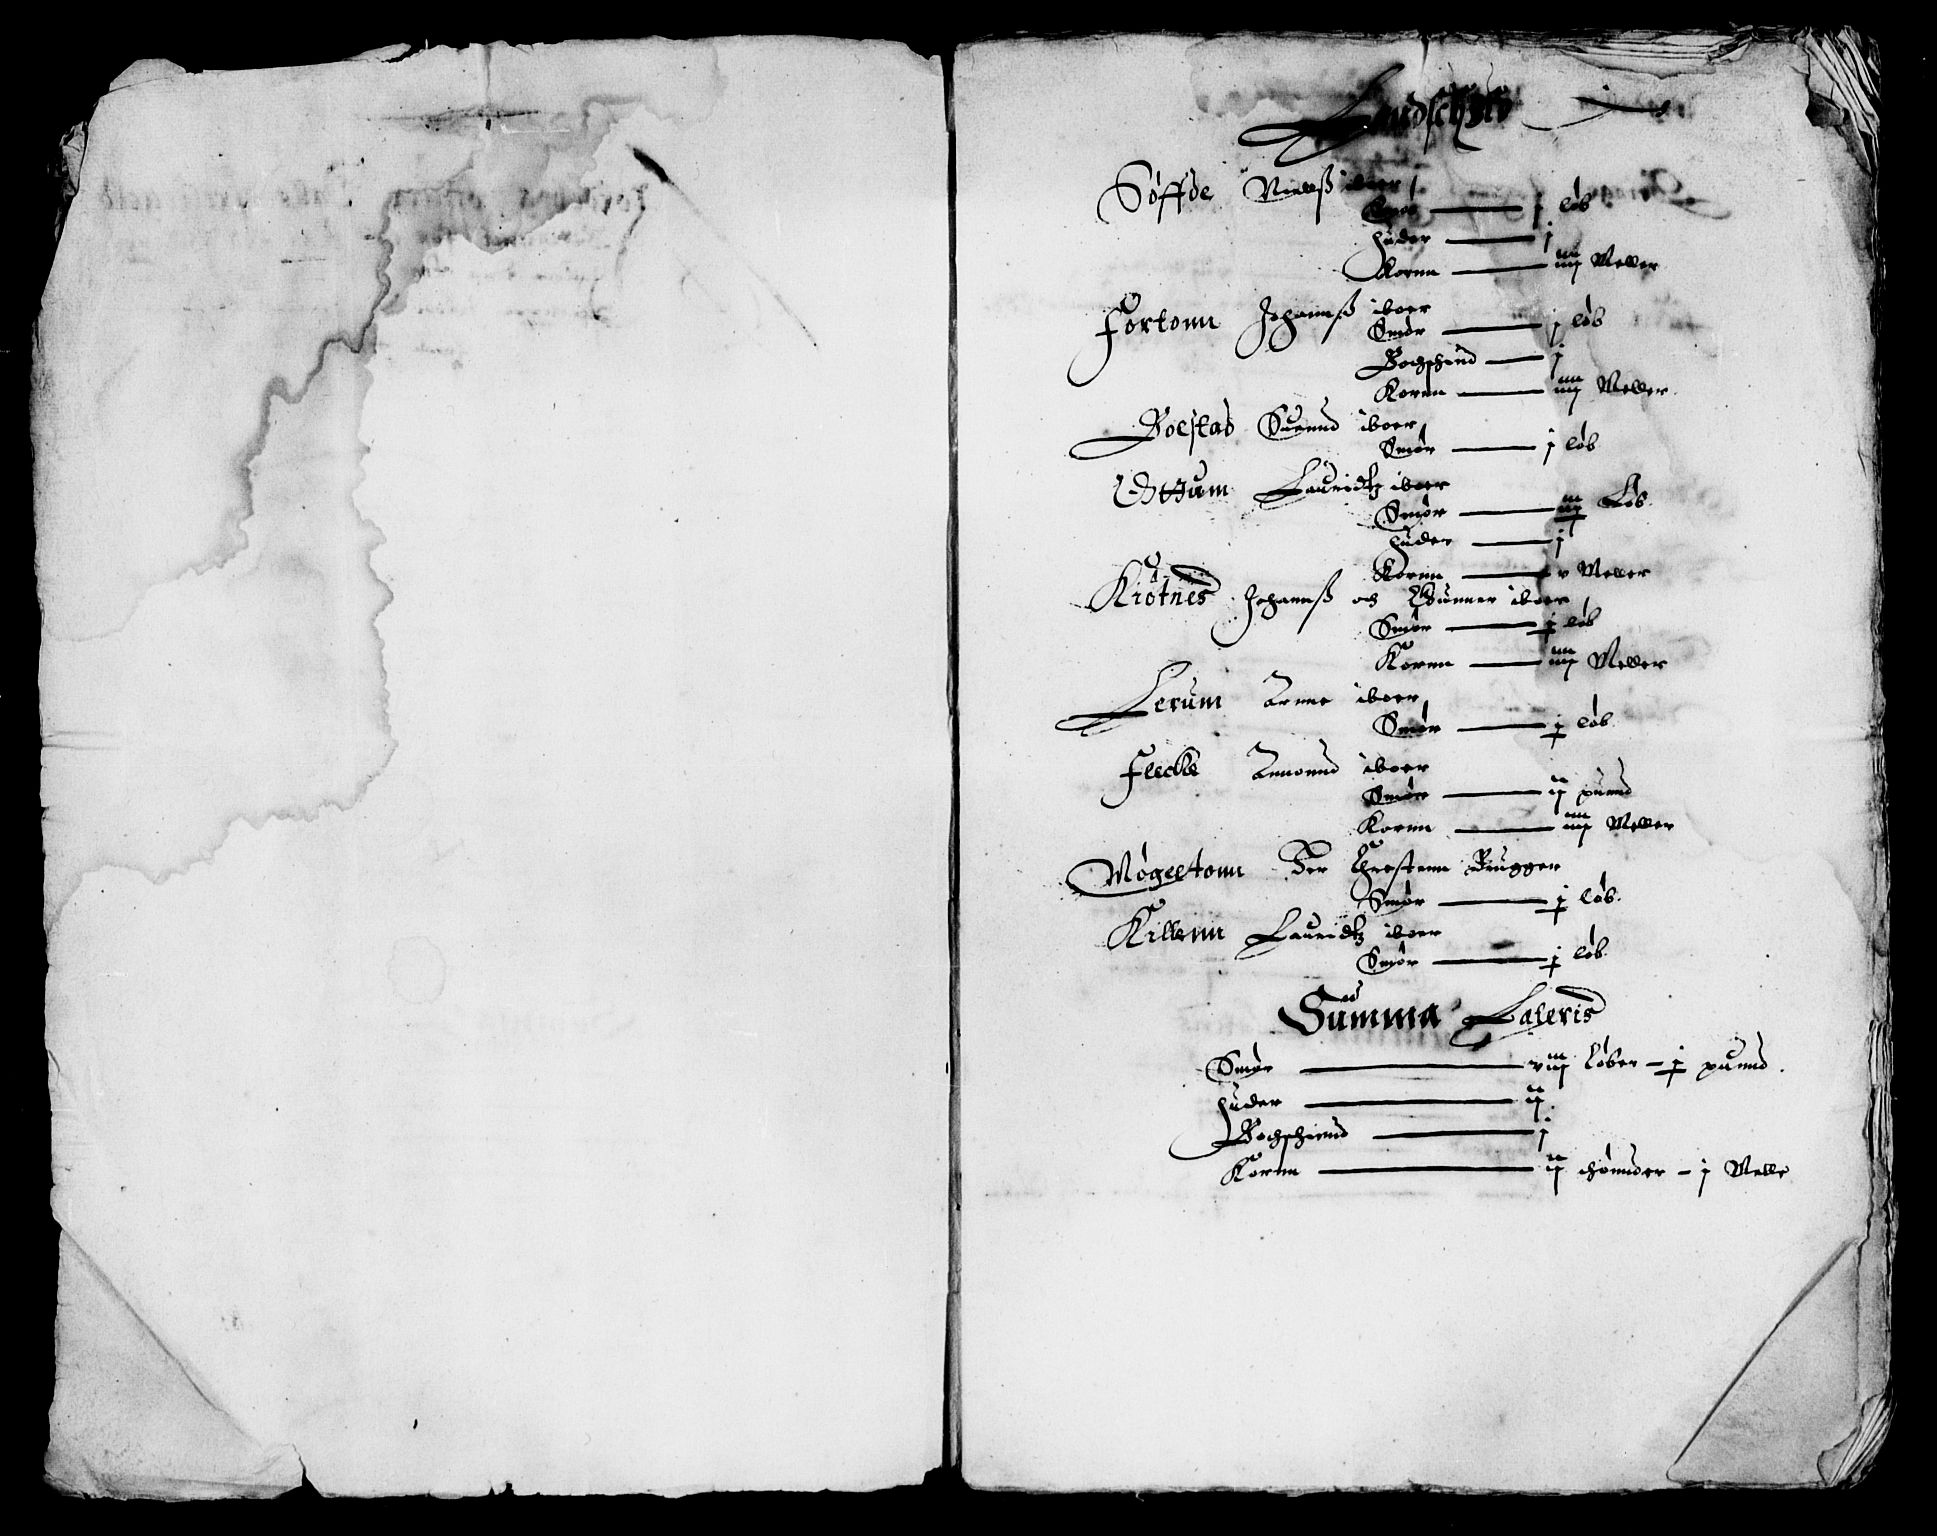 Landschyld
Søffde Nielß iboer
Smør — j løb
Huder — j
Kornn — iiij Meller
Fortonn Johannß iboer
Smør — j løb
Bochschind — j
Kornn — iiij Meller
Bolstad Siuend iboer
Smør — j løb
Ottum Lauridtz iboer
Smør — iij Løb
Huder — j
Kornn — v Meller
Kiotnes Johannß och Gunner iboer
Smør — j løb
Kornn — iiij Meller
Lerum Arnne iboer
Smør — j løb
Flecke Amound iboer
Smør — ij puund
Kornn — iiij Meller
Møgeltonn Her Chrestenn Brugger
Smør — j løb
Killenn Lauridtz iboer
Smør — j løb
Summa Lateris
Smør — viij løber – j puund
Huder — ij
Bochschiend — j
Kornn — ij thønder – j Melle